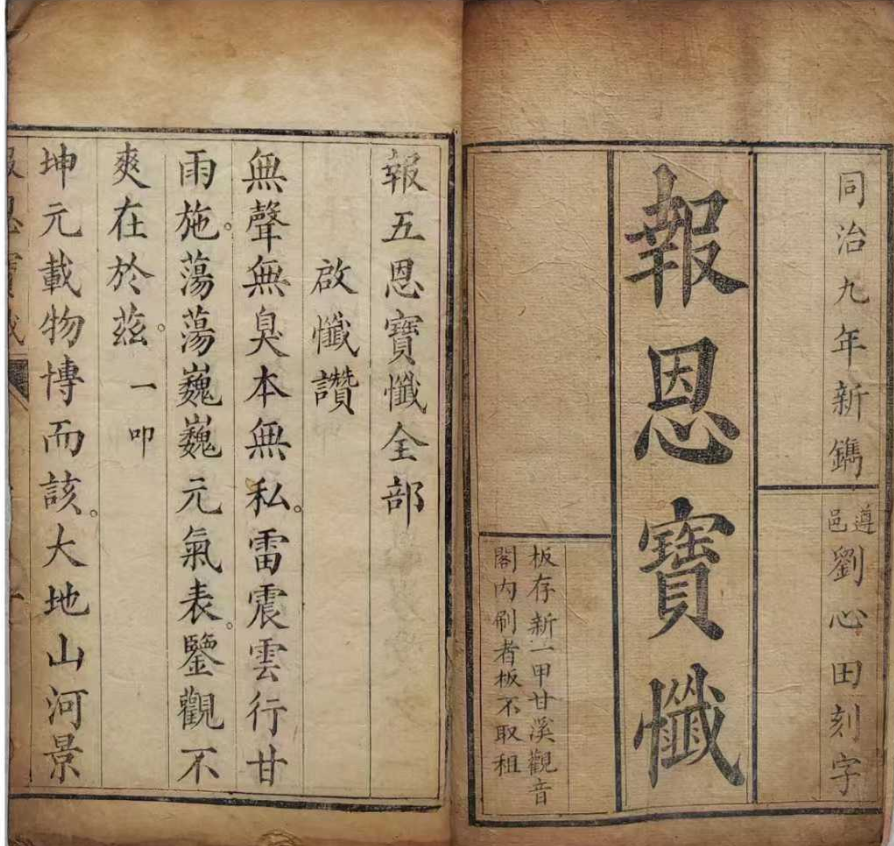 同治九年新鐫
遵邑劉心田刻字
報恩寶懺
板存新一甲甘溪觀音
閣內刷者板不取租
報五恩寶懺全部
啟懺讚
無聲無臭本無私。雷震雲行甘
雨施。蕩蕩巍巍元氣表。鑒觀不
爽在於茲。一叩
坤元載物博而該。大地山河景